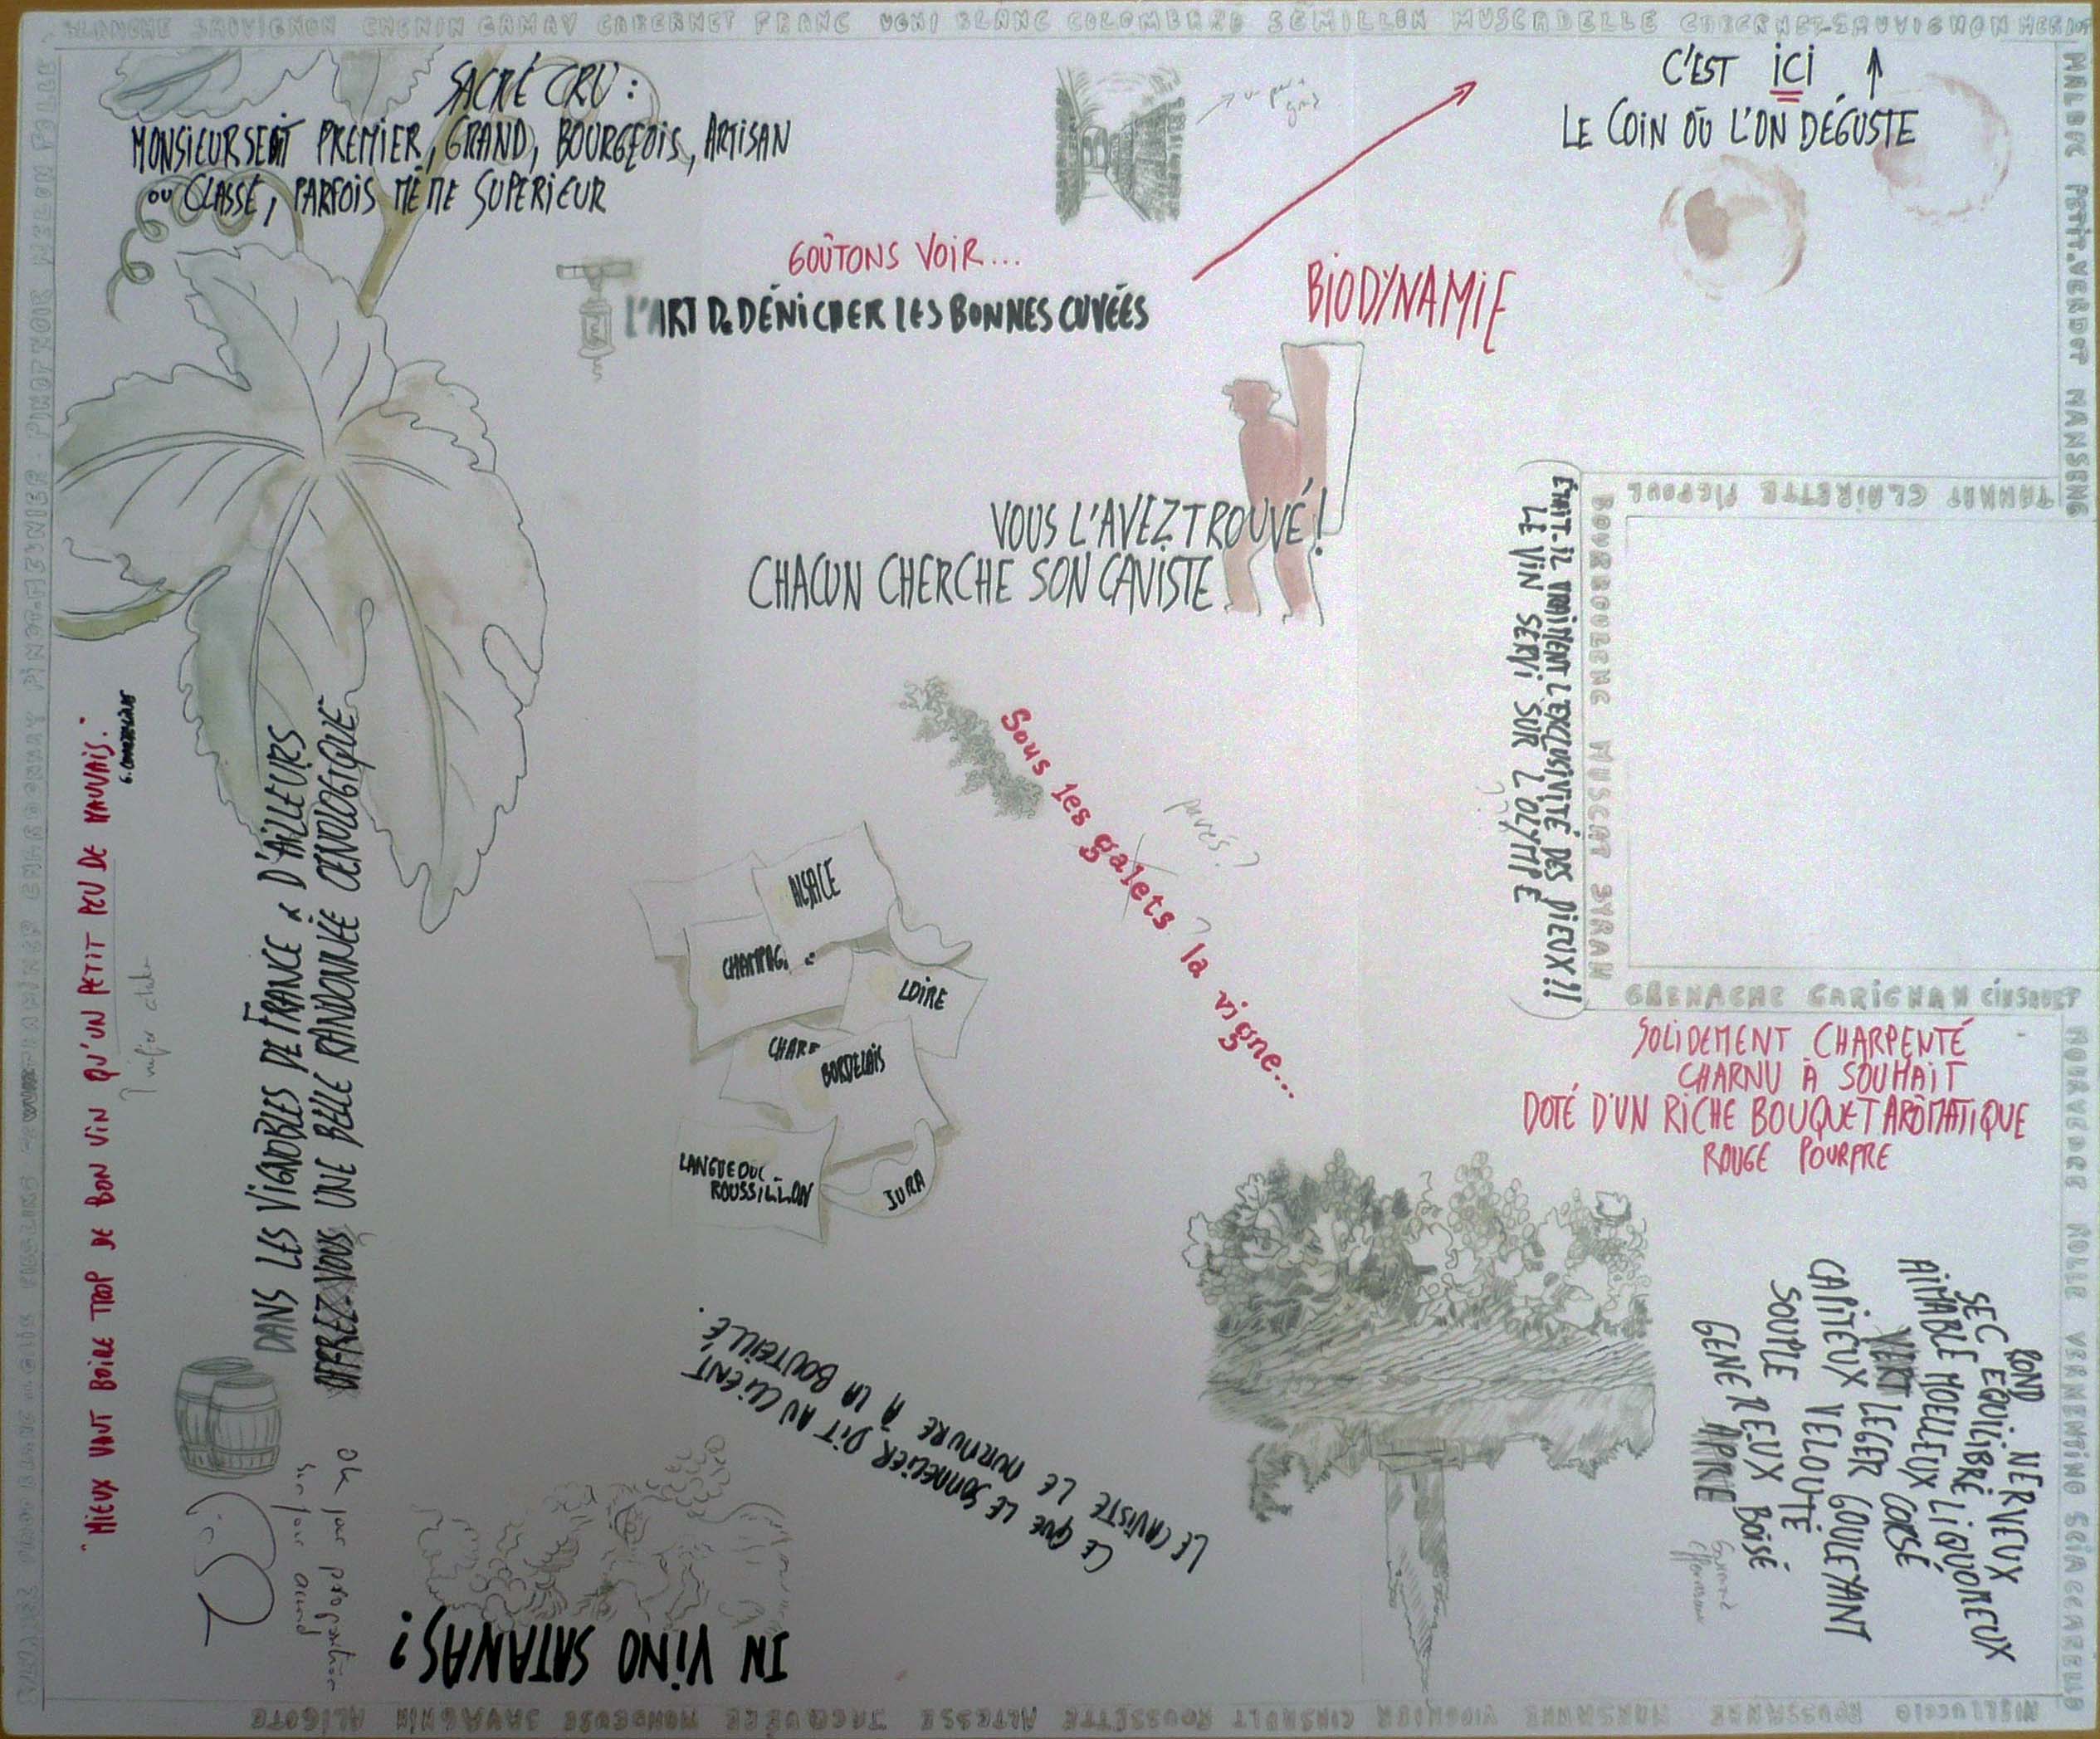 BLANCHE SAUVIGNON CHENIN GAMAY CABERNET FRANC UGNI BLANC COLOMBARD SÉMILLON MUSCADELLE CABERNET-SAUVIGNON MERLOT
MALBEC PETIT-VERDOT MANSENG
TANNAT CLAIRETTE PICPOUL
BOURBOULENC MUSCAT SYRAH
GRENACHE CARIGNAN CINSAULT
MOURVEDRE ROLLE VERMENTINO SCIACCARELLO
NIELLUCCIO ROUSSANNE MARSANNE VIOGNIER CINSAULT ROUSSETTE ALTESSE JACQUÈRE MONDEUSE SAVAGNIN ALIGOTE
CHARDONNAY PINOT-MEUNIER PINOT NOIR MELON FOLLE
SACRÉ CRU :
MONSIEUR SERAIT PREMIER, GRAND, BOURGEOIS, ARTISAN
OU CLASSÉ, PARFOIS MÊME SUPÉRIEUR
GOÛTONS VOIR...
L'ART De DÉNICHER LES BONNES CUVÉES
C'EST ICI
LE COIN OÙ L'ON DÉGUSTE
BIODYNAMIE
VOUS L'AVEZ TROUVÉ !
CHACUN CHERCHE SON CAVISTE
ÉTAIT-IL VRAIMENT L'EXCLUSIVITÉ DES DIEUX !!
LE VIN SERVI SUR L'OLYMPE
Sous les galets la vigne...
pavés ?
ALSACE
CHAMPAG
LOIRE
CHARE
BORDELAIS
LANGUEDOC
ROUSSILLON
JURA
"MIEUX VAUT BOIRE TROP DE BON VIN QU'UN PETIT PEU DE MAUVAIS."
G. COURTELINE
DANS LES VIGNOBLES DE FRANCE & D'AILLEURS
OFFREZ-VOUS UNE BELLE RANDONNÉE OENOLOGIQUE
Ok pour proposition
CE QUE LE SOMMELIER DIT AU CLIENT,
LE CAVISTE LE MURMURE À LA BOUTEILLE.
IN VINO SATANAS ?
SOLIDEMENT CHARPENTÉ
CHARNU À SOUHAIT
DOTÉ D'UN RICHE BOUQUET AROMATIQUE
ROUGE POURPRE
ROND NERVEUX
SEC EQUILIBRÉ LIQUOREUX
AIMABLE MOELLEUX CORSÉ
VERT LEGER GOULEYANT
CAPITEUX VELOUTÉ
SOUPLE BOISÉ
GENEREUX
APRE